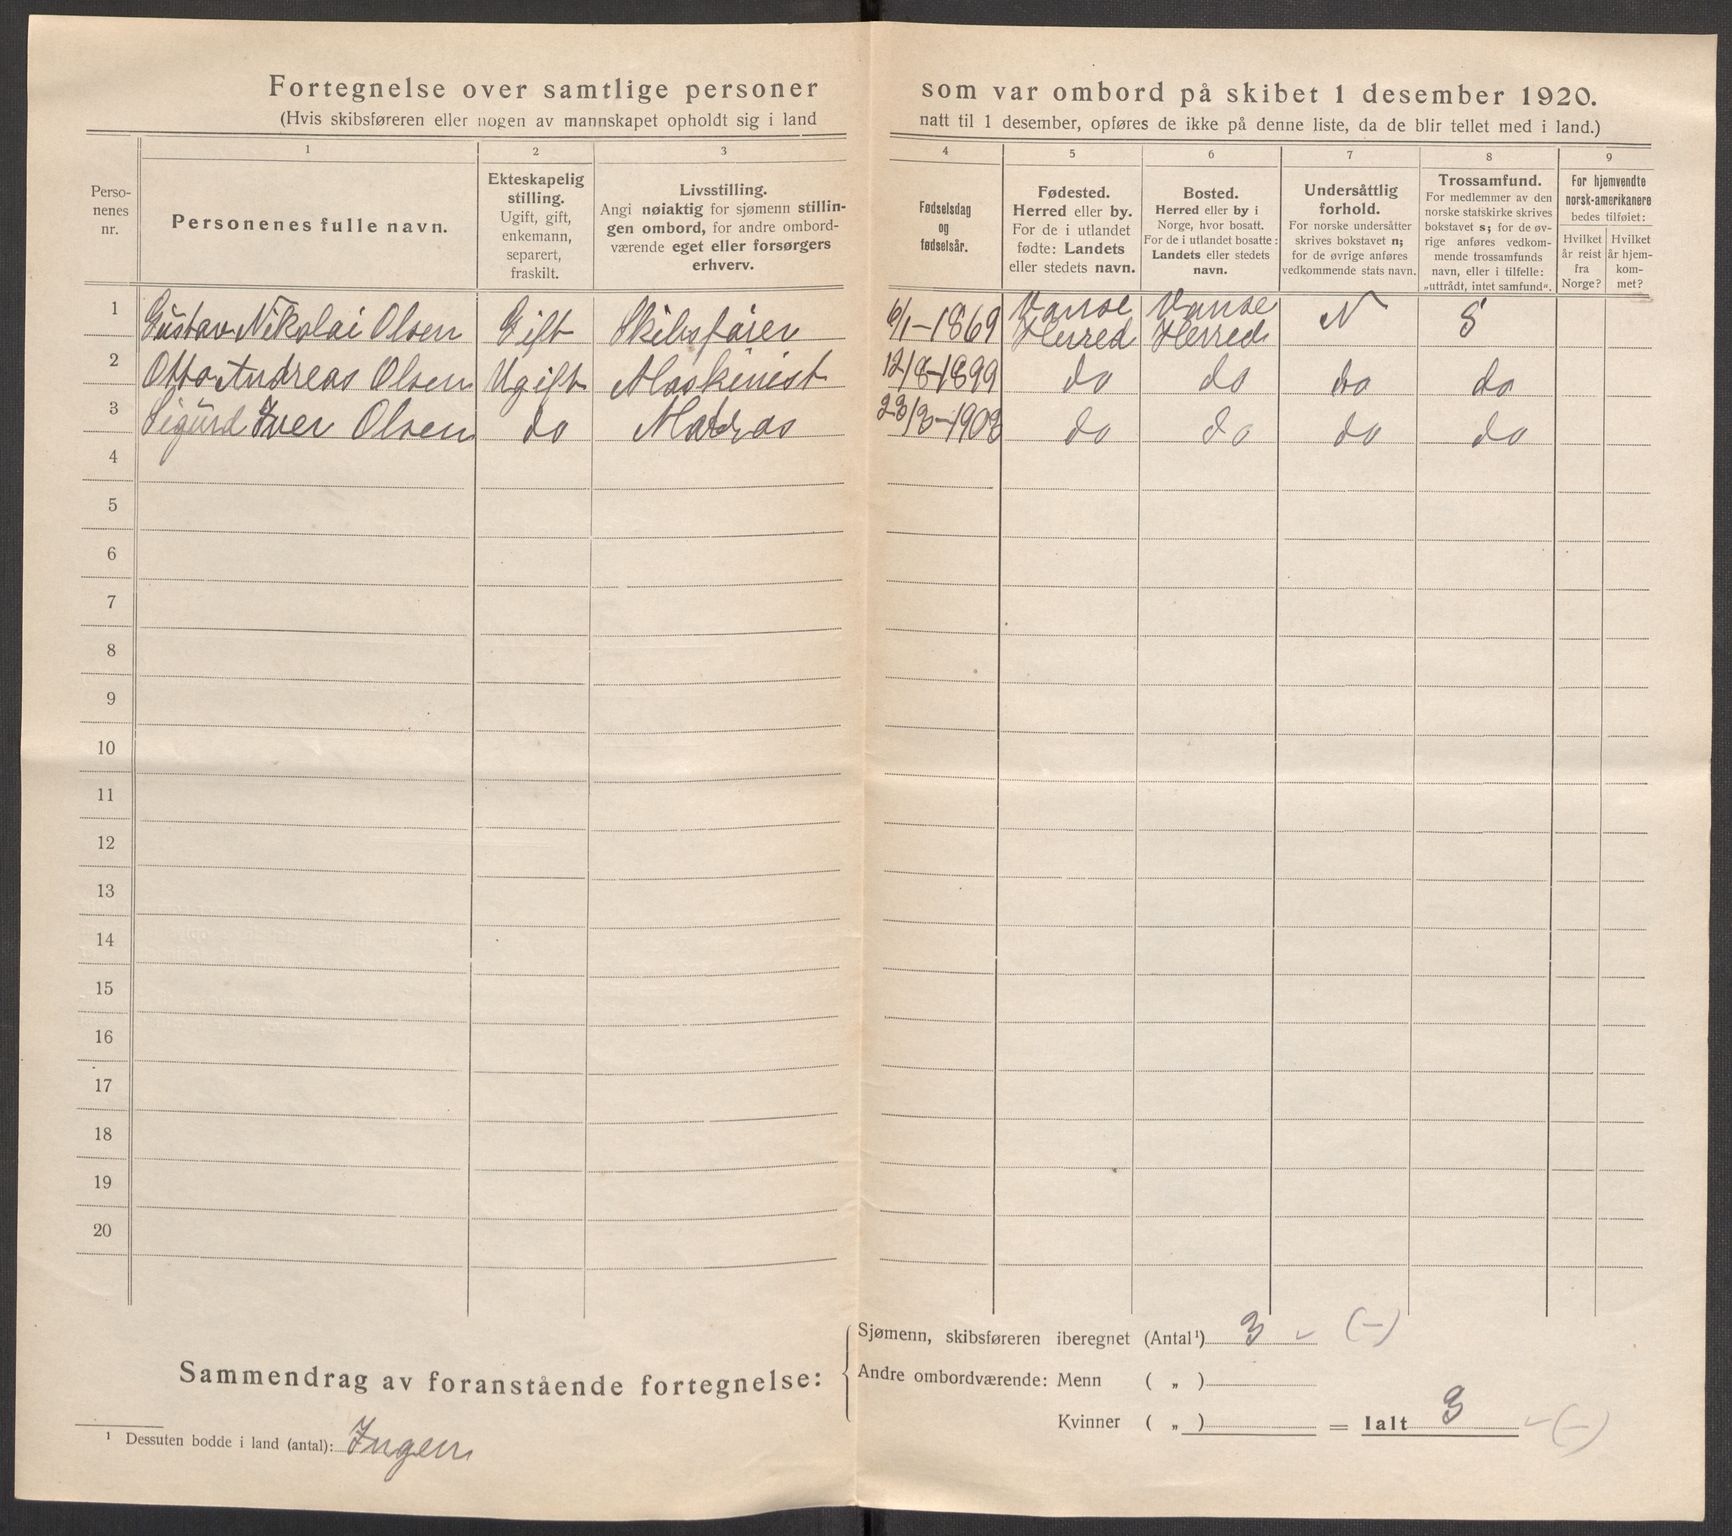 Fortegnelse over samtlige personer som var ombord på skibet 1 desember 1920.
(Hvis skibsføreren eller nogen av mannskapet opholdt sig i land natt til 1 desember, opføres de ikke på denne liste, da de blir tellet med i land.)
Personenes nr.
1
Personenes fulle navn.
2
Ekteskapelig
stilling.
Ugift, gift,
enkemann,
separert,
fraskilt.
3
Livsstilling.
Angi nøiaktig for sjømenn stillin-
gen ombord, for andre ombord-
værende eget eller forsørgers
erhverv.
4
Fødselsdag
og
fødselsår.
5
Fødested.
Herred eller by.
For de i utlandet
fødte: Landets
eller stedets navn.
6
Bosted.
Herred eller by i
Norge, hvor bosatt.
For de i utlandet bosatte:
Landets eller stedets
navn.
7
Undersåttlig
forhold.
For norske undersåtter
skrives bokstavet n;
for de øvrige anføres
vedkommende stats navn.
8
Trossamfund.
For medlemmer av den
norske statskirke skrives
bokstavet s; for de øv-
rige anføres vedkom-
mende trossamfunds
navn, eller i tilfelle:
„uttrådt, intet samfund“.
9
For hjemvendte
norsk-amerikanere
bedes tilføiet:
Hvilket
år reist
fra
Norge?
Hvilket
år hjem-
kom-
met?
1 Gustav Nikolai Olsen Gift Skibsfører 6/1-1869 Vanse Herred Vanse Herred N S
2 Otto Andreas Olsen Ugift Maskinist 12/8-1899 do do do do
3 Sigurd Iver Olsen do Matros 23/3-1903 do do do do
4
5
6
7
8
9
10
11
12
13
14
15
16
17
18
19
20
Sammendrag av foranstående fortegnelse:
Sjømenn, skibsføreren iberegnet (Antal¹) 3 (–)
Andre ombordværende: Menn ( „ )
Kvinner ( „ ) = Ialt 3 (–)
¹ Dessuten bodde i land (antal): Ingen